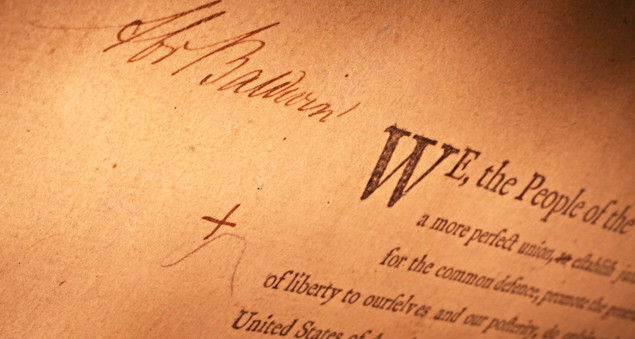 Abr Baldwin
WE, the People of the
a more perfect union, eſtabliſh
for the common defence, promote the
of liberty to ourſelves and our poſterity, do
United States of